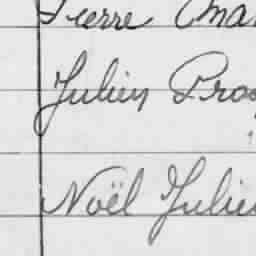 Pierre
Julien Pros
Noël Julie